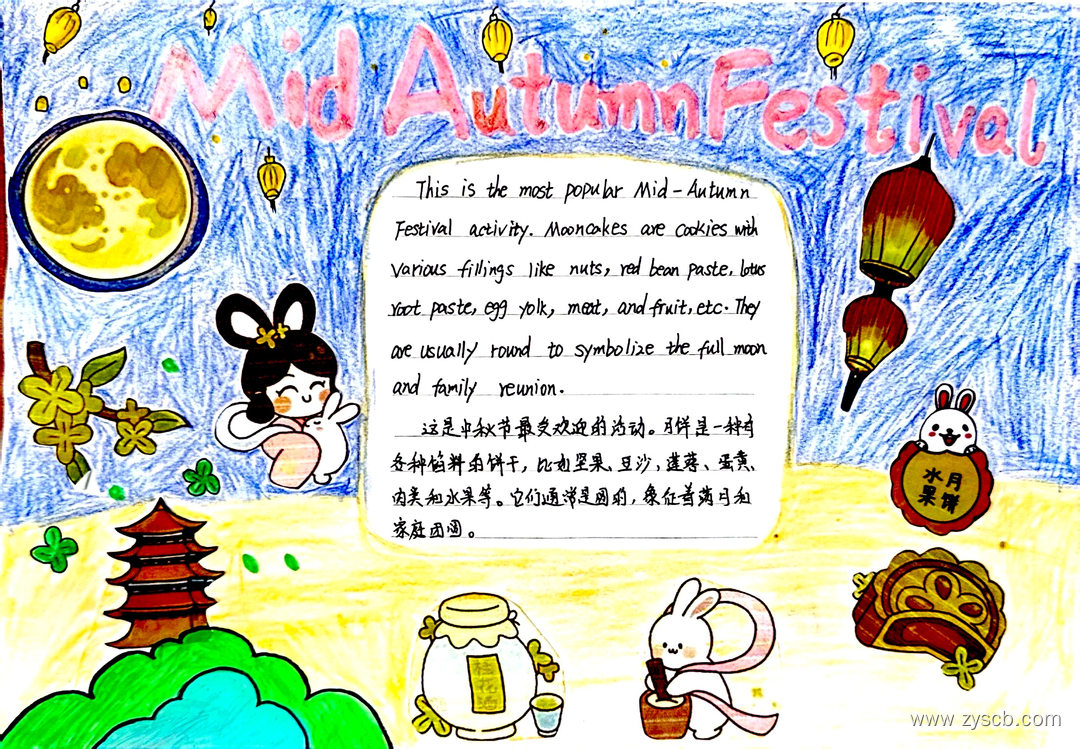 Mid Autumn Festival
This is the most popular Mid-Autumn
Festival activity. Mooncakes are cookies with
various fillings like nuts, red bean paste, lotus
root paste, egg yolk, meat, and fruit, etc. They
are usually round to symbolize the full moon
and family reunion.
这是中秋节最受欢迎的活动。月饼是一种有
各种馅料的饼干，比如坚果、豆沙，莲蓉、蛋黄、
肉类和水果等。它们通常是圆的，象征着满月和
家庭团圆。
水月
果饼
桂花酒
www.zyscb.com